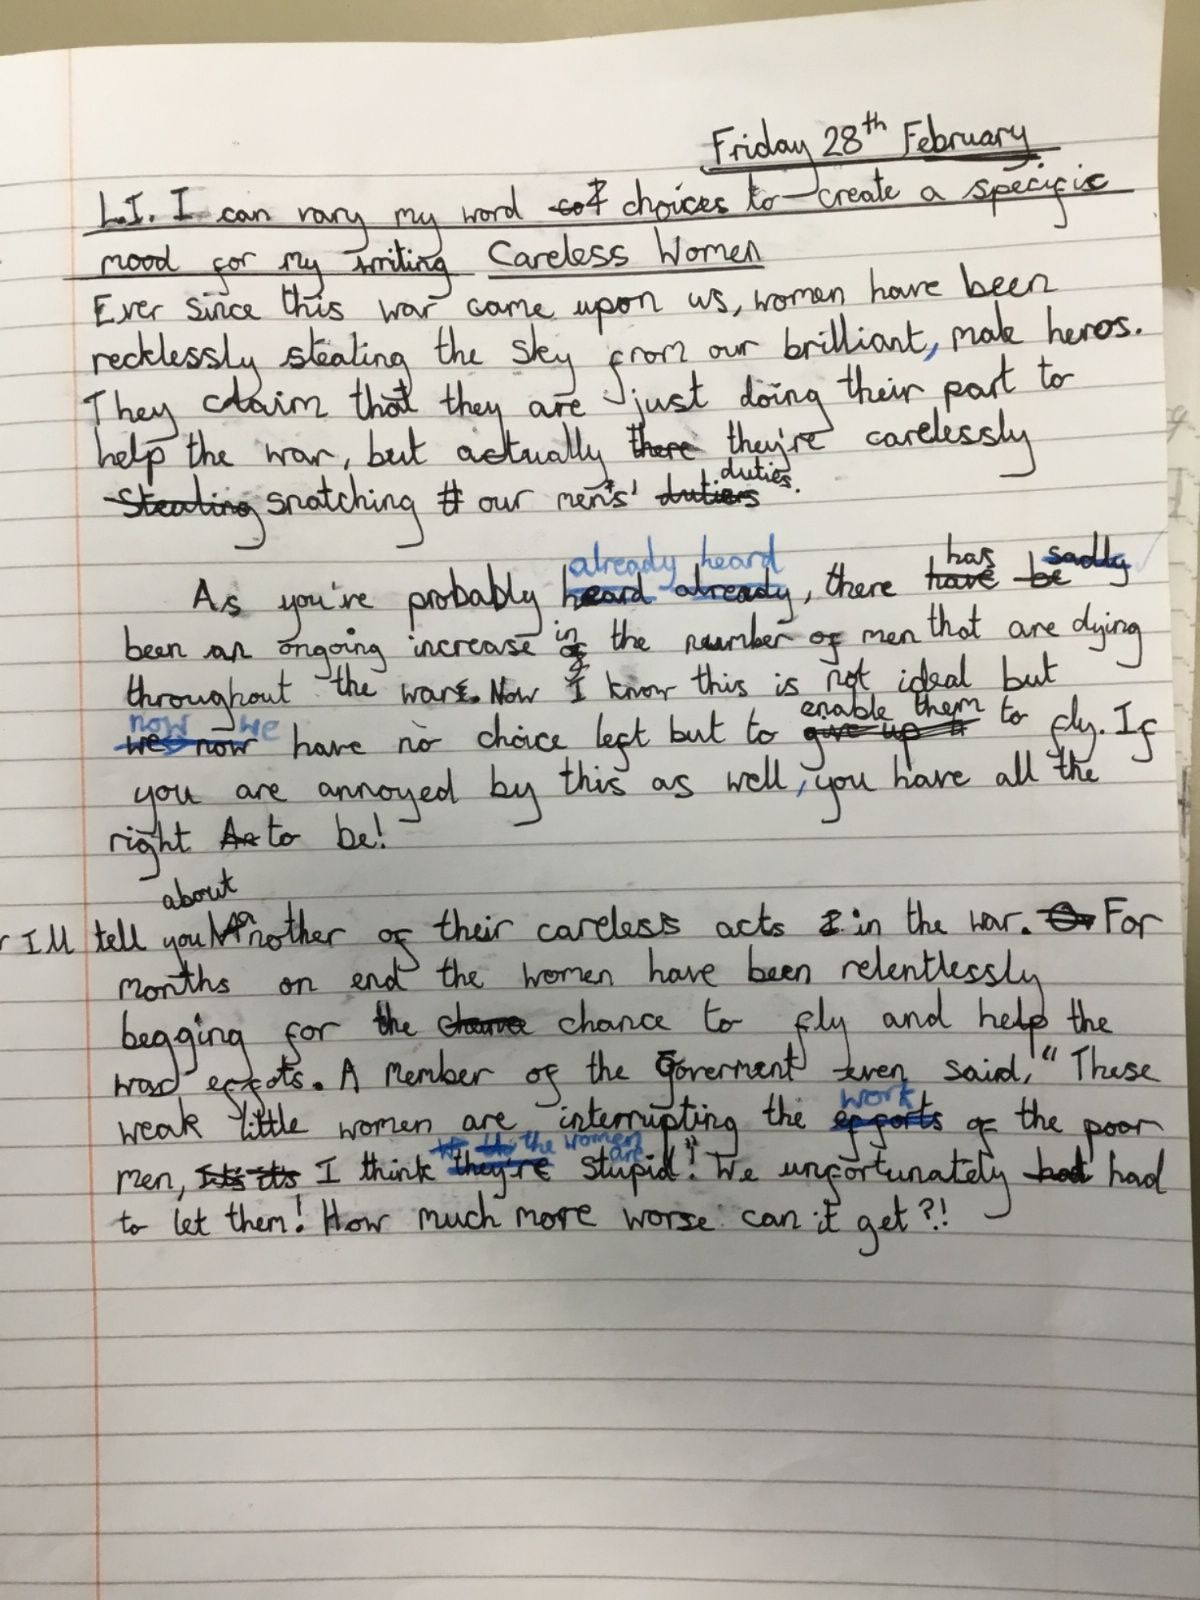 Friday 28th February
L.I. I can vary my word choices to create a specific
mood for my writing Careless Women
Ever since this war came upon us, women have been
recklessly stealing the sky from our brilliant, male heros.
They claim that they are just doing their part to
help the war, but actually there they're carelessly
duties.
Stealing snatching our men's' duties
already heard has sadly
As you've probably heard already, there have be
been an ongoing increase in the number of men that are dying
throughout the war. Now I know this is not ideal but
now we enable them
we now have no choice left but to give up it to fly. If
you are annoyed by this as well, you have all the
right An to be!
about
I'll tell you Another of their careless acts in the war. For
months on end the women have been relentlessly
begging for the chance to fly and help the
war effots. A member of the Goverment even said, "These
work
weak little women are interrupting the efforts of the poor
the women are
men, It's its I think they're stupid!" We unfortunately had
to let them! How much more worse can it get?!